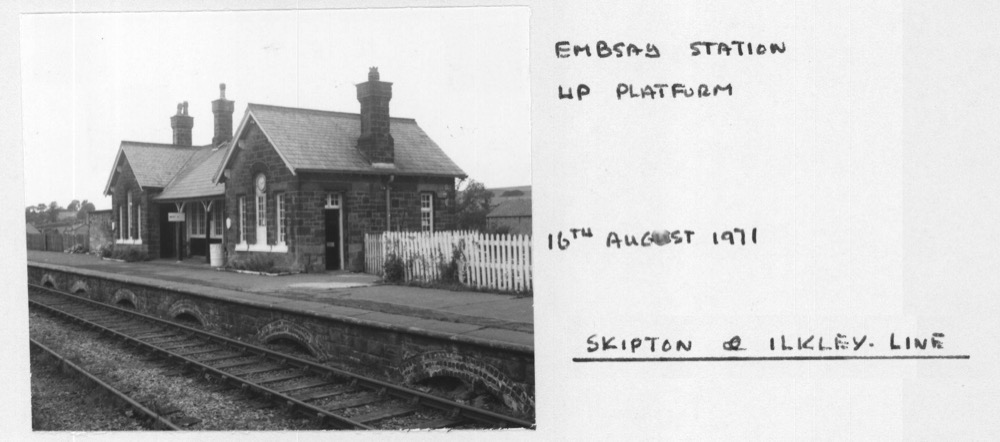 EMBSAY STATION
UP PLATFORM
16TH AUGUST 1971
SKIPTON & ILKLEY. LINE